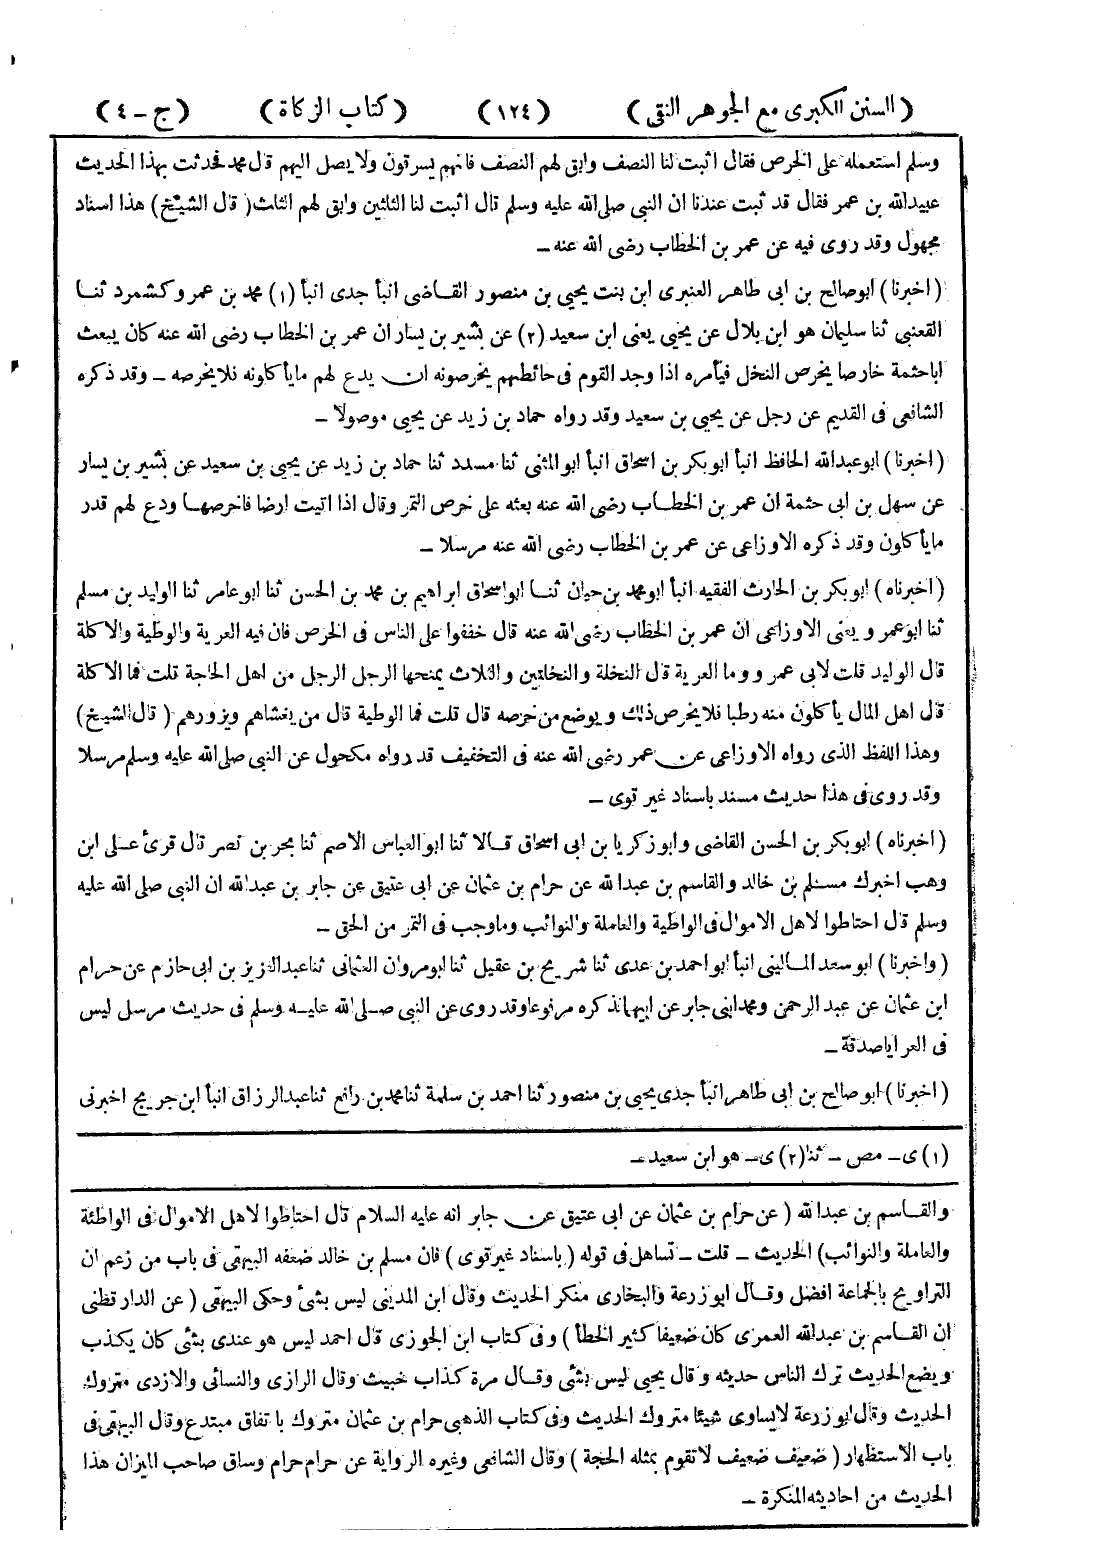 (السنن الكبرى مع الجوهر النقى) (١٢٤) (كتاب الزكاة) (ج – ٤)
وسلم استعمله على الخرص فقال اثبت لنا النصف وابق لهم النصف فانهم يسرقون ولا يصل اليهم قال محمد فحدثت بهذا الحديث
عبيدالله بن عمر فقال قد ثبت عندنا ان النبى صلى الله عليه وسلم قال اثبت لنا الثلثين وابق لهم الثلث (قال الشيخ) هذا اسناد
مجهول وقد روى فيه عن عمر بن الخطاب رضى الله عنه –
(اخبرنا) ابوصالح بن ابى طاهر العنبرى ابن بنت يحيى بن منصور القاضى انبأ جدى انبأ (١) محمد بن عمرو كشمرد ثنا
القعنبى ثنا سليمان هو ابن بلال عن يحيى يعنى ابن سعيد (٢) عن بشير بن يسار ان عمر بن الخطاب رضى الله عنه كان يبعث
اباحثمة خارصا يخرص النخل فيأمره اذا وجد القوم فى حائطهم يخرصونه ان يدع لهم مايأكلونه فلايخرصه – وقد ذكره
الشافعى فى القديم عن رجل عن يحيى بن سعيد وقد رواه حماد بن زيد عن يحيى موصولا –
(اخبرنا) ابوعبدالله الحافظ انبأ ابوبكر بن اسحاق انبأ ابوالمثنى ثنا مسدد ثنا حماد بن زيد عن يحيى بن سعيد عن بشير بن يسار
عن سهل بن ابى حثمة ان عمر بن الخطاب رضى الله عنه بعثه على خرص التمر وقال اذا اتيت ارضا فاخرصها ودع لهم قدر
مايأكلون وقد ذكره الاوزاعى عن عمر بن الخطاب رضى الله عنه مرسلا –
(اخبرناه) ابوبكر بن الحارث الفقيه انبأ ابومحمد بن حيان ثنا ابواسحاق ابراهيم بن محمد بن الحسن ثنا ابوعامر ثنا الوليد بن مسلم
ثنا ابوعمرو يعنى الاوزاعى ان عمر بن الخطاب رضى الله عنه قال خففوا على الناس فى الخرص فان فيه العرية والوطية والاكلة
قال الوليد قلت لابى عمرو وما العرية قال النخلة والنخلتين والثلاث يمنحها الرجل الرجل من اهل الحاجة قلت فما الاكلة
قال اهل المال يأكلون منه رطبا فلايخرص ذلك ويوضع من خرصه قال قلت فما الوطية قال من يغشاهم ويزورهم (قال الشيخ)
وهذا اللفظ الذى رواه الاوزاعى عن عمر رضى الله عنه فى التخفيف قد رواه مكحول عن النبى صلى الله عليه وسلم مرسلا
وقد روى فى هذا حديث مسند باسناد غير قوى –
(اخبرناه) ابوبكر بن الحسن القاضى وابوزكريا بن ابى اسحاق قالا ثنا ابوالعباس الاصم ثنا بحر بن نصر قال قرئ على ابن
وهب اخبرك مسلم بن خالد والقاسم بن عبدالله عن حرام بن عثمان عن ابى عتيق عن جابر بن عبدالله ان النبى صلى الله عليه
وسلم قال احتاطوا لاهل الاموال فى الواطية والعاملة والنوائب وماوجب فى التمر من الحق –
(واخبرنا) ابوسعد المالينى انبأ ابواحمد بن عدى ثنا شريح بن عقيل ثنا ابومروان العثمانى ثنا عبدالعزيز بن ابى حازم عن حرام
ابن عثمان عن عبد الرحمن ومحمد ابنى جابر عن ابيهما فذكره مرفوعا وقد روى عن النبى صلى الله عليه وسلم فى حديث مرسل ليس
فى العرايا صدقة –
(اخبرنا) ابوصالح بن ابى طاهر انبأ جدى يحيى بن منصور ثنا احمد بن سلمة ثنا محمد بن رافع ثنا عبدالرزاق انبأ ابن جريج اخبرنى
(١) ى – مص – ثنا (٢) ى – هو ابن سعيد –
والقاسم بن عبدالله (عن حرام بن عثمان عن ابى عتيق عن جابر انه عليه السلام قال احتاطوا لاهل الاموال فى الواطئة
والعاملة والنوائب) الحديث – قلت – تساهل فى قوله (باسناد غير قوى) فان مسلم بن خالد ضعفه البيهقى فى باب من زعم ان
التراويح بالجماعة افضل وقال ابوزرعة والبخارى منكر الحديث وقال ابن المدينى ليس بشئ وحكى البيهقى (عن الدار قطنى
ان القاسم بن عبدالله العمرى كان ضعيفا كثير الخطأ) وفى كتاب ابن الجوزى قال احمد ليس هو عندى بشئ كان يكذب
ويضع الحديث ترك الناس حديثه وقال يحيى ليس بشئ وقال مرة كذاب خبيث وقال الرازى والنسائى والازدى متروك
الحديث وقال ابوزرعة لايساوى شيئا متروك الحديث وفى كتاب الذهبى حرام بن عثمان متروك باتفاق مبتدع وقال البيهقى فى
باب الاستظهار (ضعيف ضعيف لا تقوم بمثله الحجة) وقال الشافعى وغيره الرواية عن حرام حرام وساق صاحب الميزان هذا
الحديث من احاديثه المنكرة –